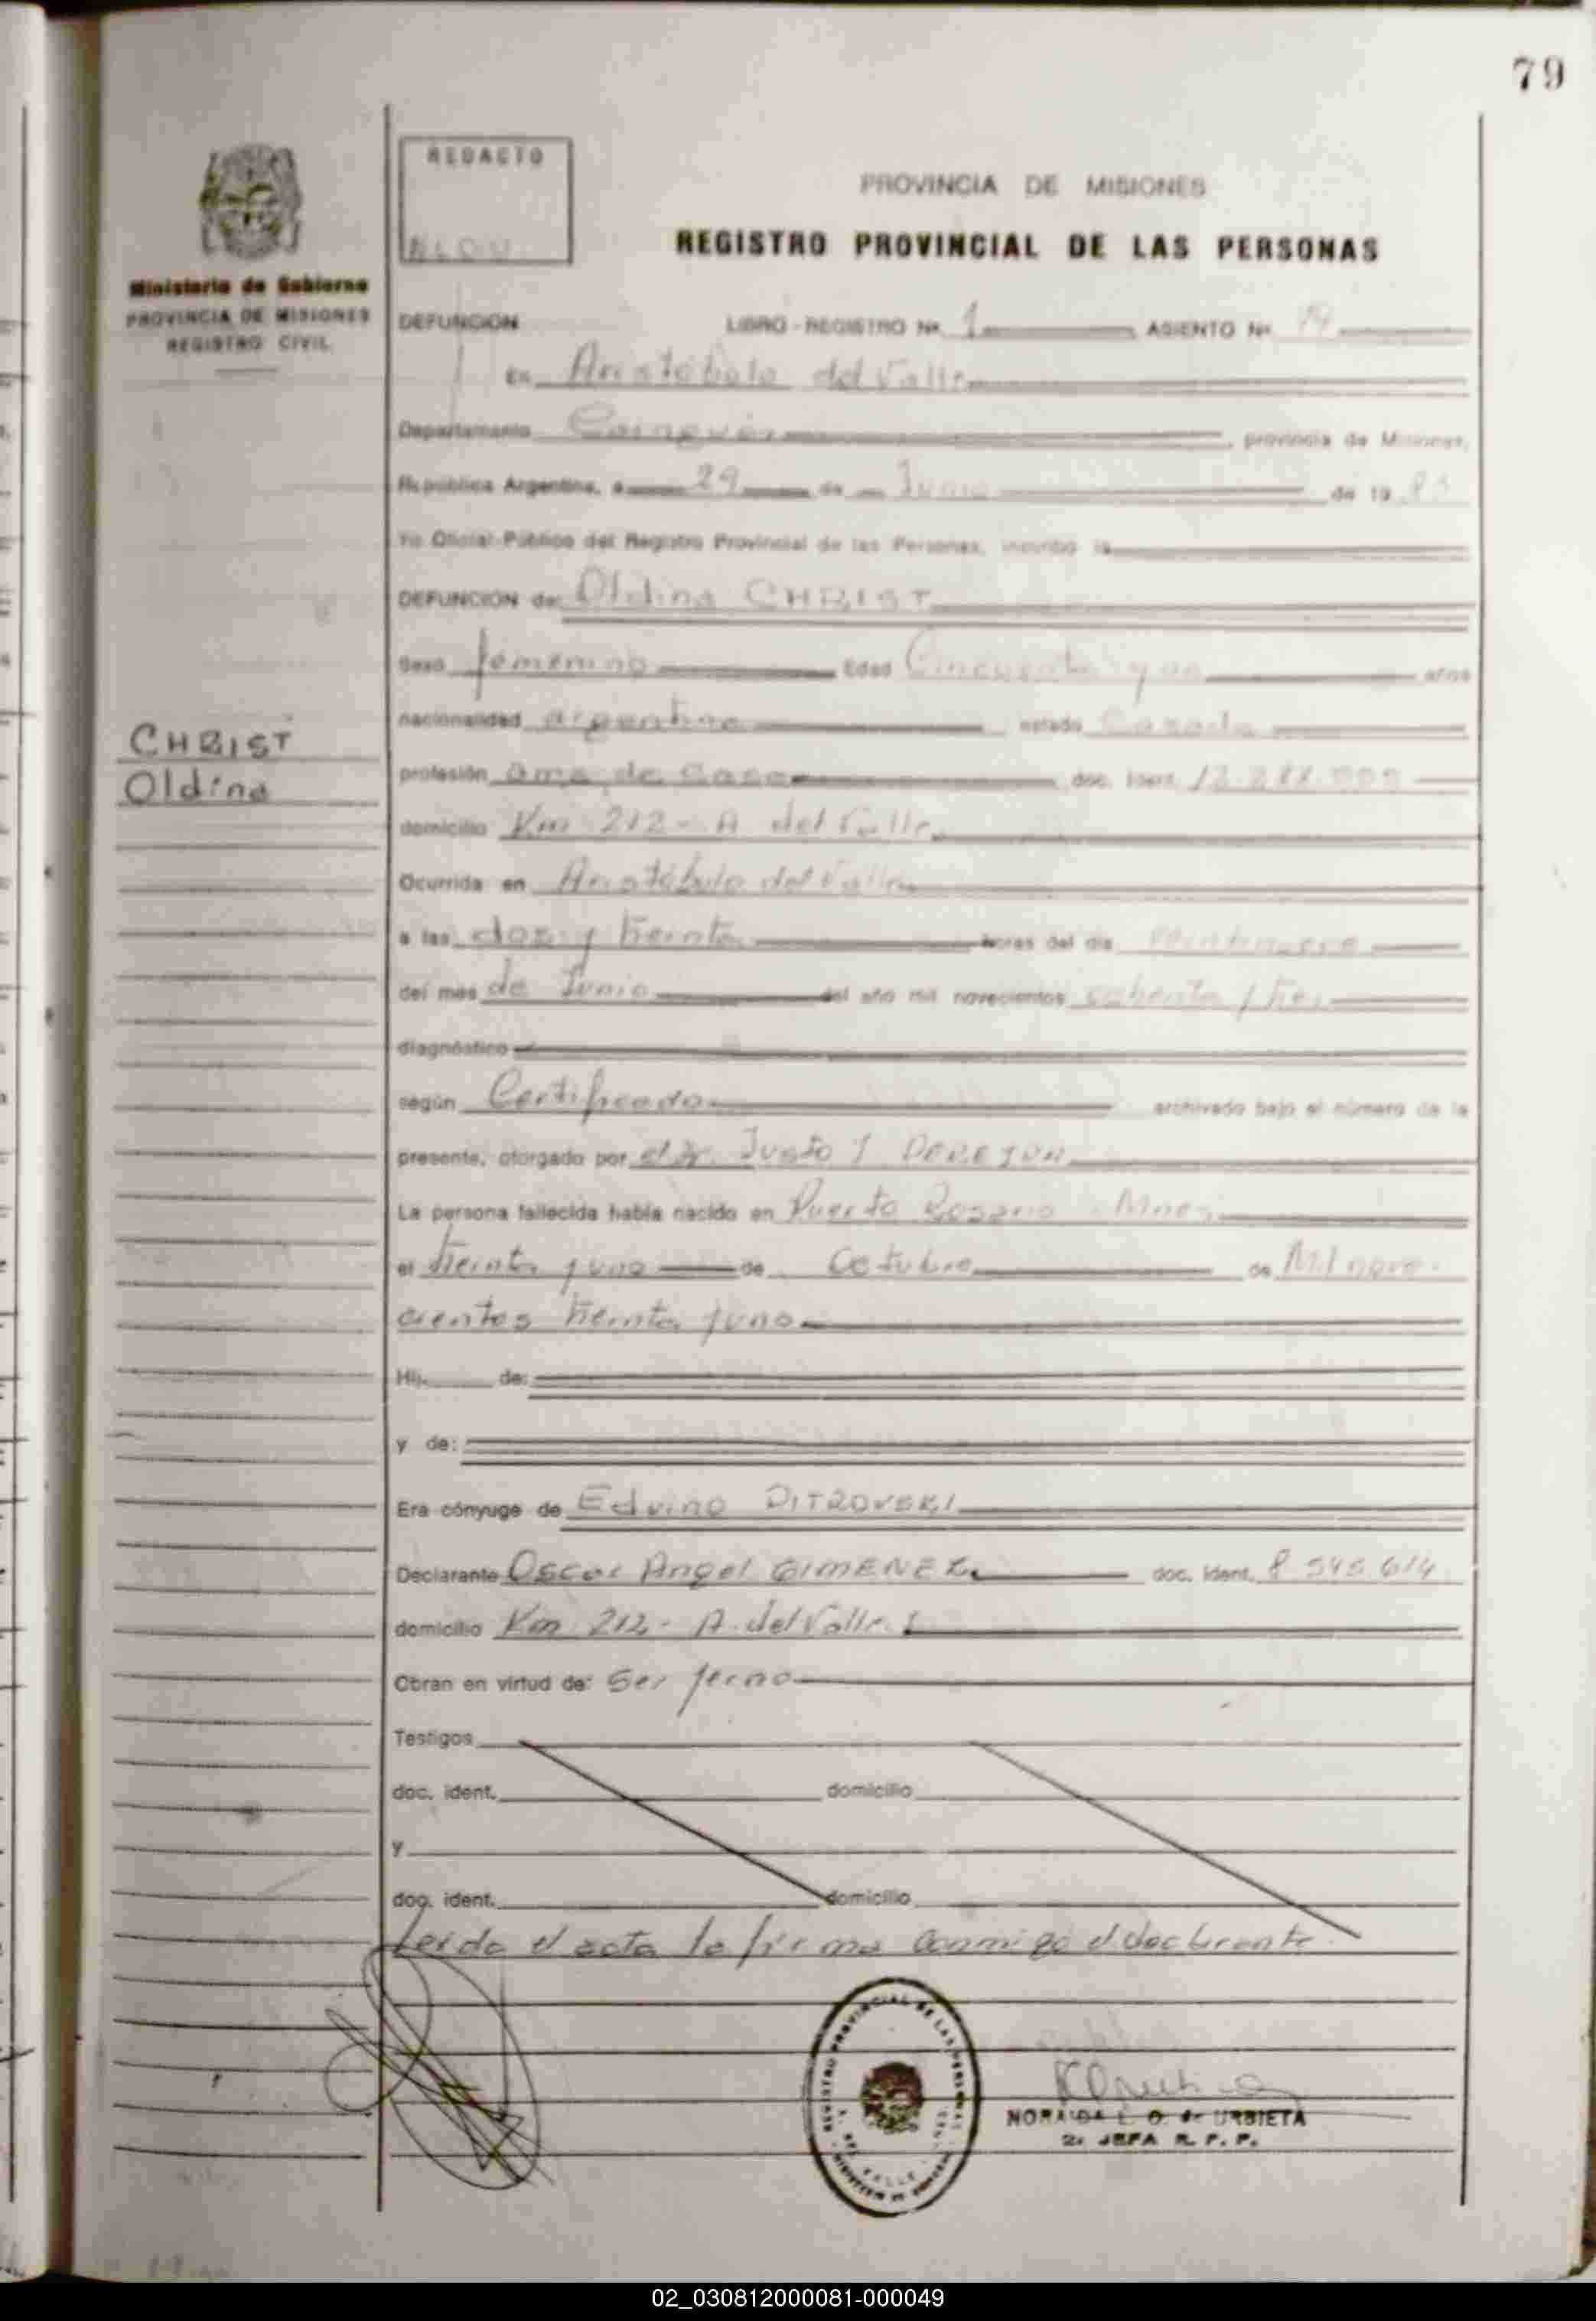 79
REDACTO
N.L.O.U.
PROVINCIA DE MISIONES
REGISTRO PROVINCIAL DE LAS PERSONAS
Ministerio de Gobierno
PROVINCIA DE MISIONES
REGISTRO CIVIL
DEFUNCION LIBRO - REGISTRO Nº 1 ASIENTO Nº
En Aristóbulo del Valle
Departamento Cainguás, provincia de Misiones,
República Argentina, a 29 de Junio de 19 83
Yo Oficial Público del Registro Provincial de las Personas, inscribo la
DEFUNCION de: Oldina CHRIST
Sexo femenino Edad Cincuenta y un años
nacionalidad argentina estado Casada
CHRIST
Oldina
profesión ama de Casa doc. ident.
domicilio Km 212 - A del Valle
Ocurrida en Aristóbulo del Valle
a las dos y treinta horas del día veintinueve
del mes de Junio del año mil novecientos ochenta y tres
diagnóstico
según Certificado archivado bajo el número de la
presente, otorgado por el Dr. Justo
La persona fallecida había nacido en Puerto Rosario - Mnes.
el treinta y uno de Octubre de Mil nove-
cientos treinta y uno
Hij de:
y de:
Era cónyuge de Edvino PITROVSKI
Declarante Oscar Angel GIMENEZ doc. ident. 8 545 614
domicilio Km 212 - A. del Valle
Obran en virtud de: Ser yerno
Testigos
doc. ident. domicilio
y
doc. ident. domicilio
Leida el acta la firma conmigo el declarante.
REGISTRO PROVINCIAL DE LAS PERSONAS
A. DEL VALLE
NORAIDA L. O. de URBIETA
2ª JEFA R. P. P.
02_030812000081-000049